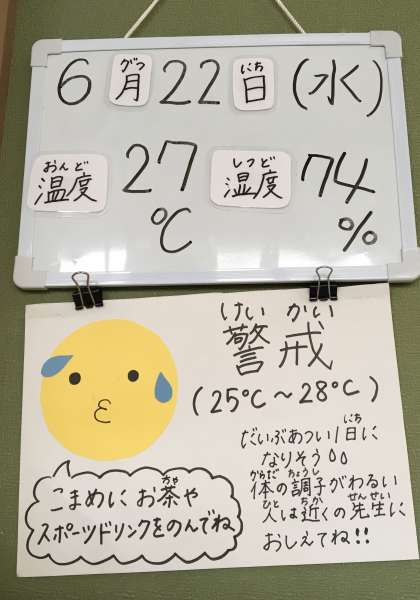 6月22日(水)
がつ にち
温度 27℃
おんど
湿度 74%
しつど
けいかい
警戒
(25℃～28℃)
だいぶあつい1日に
にち
なりそう
体の調子がわるい
からだ ちょうし
人は近くの先生に
ひと ちか せんせい
おしえてね!!
こまめにお茶や
ちゃ
スポーツドリンクをのんでね